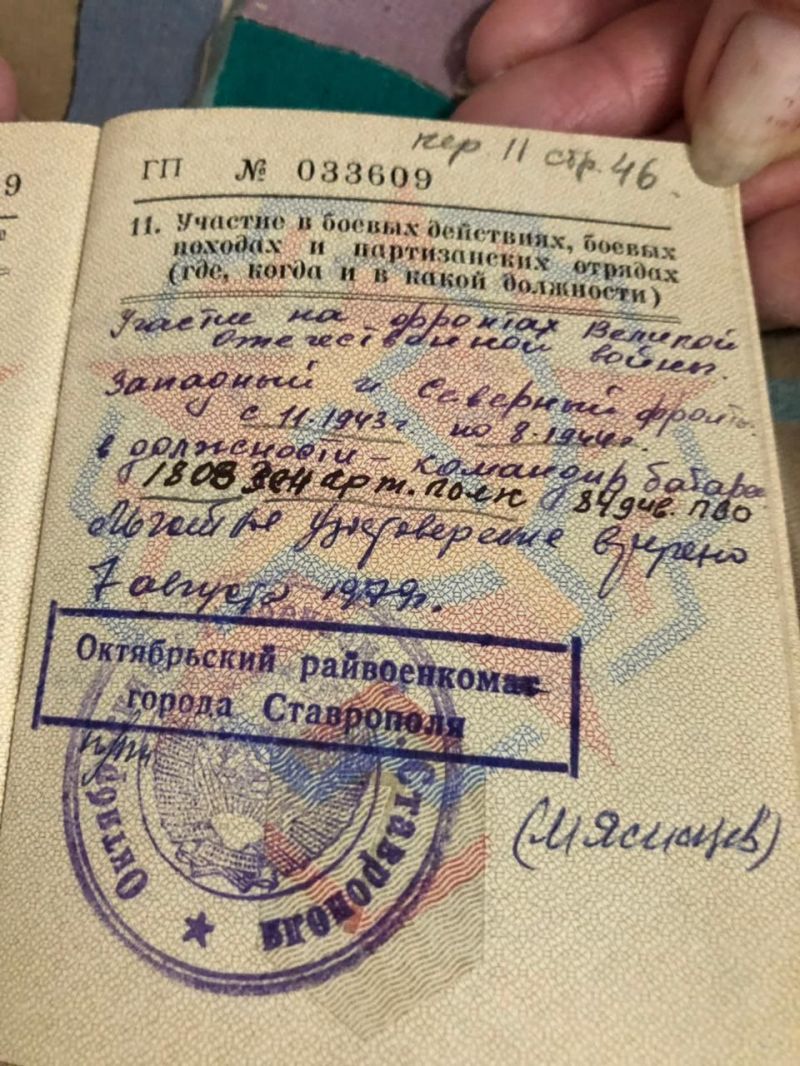 9
пер. 11 стр. 46.
ГП № 033609
11. Участие в боевых действиях, боевых
походах и партизанских отрядах
(где, когда и в какой должности)
Участие на фронтах Великой
Отечественной войны.
Западный и Северный фронты
с 11.1943г по 8.1944г.
в должности - командир батареи
1803 зен арт. полк 84 див. ПВО
Удостоверение вручено
7 августа 1979г.
Октябрьский райвоенкомат
города Ставрополя
Октябр
Ставрополя